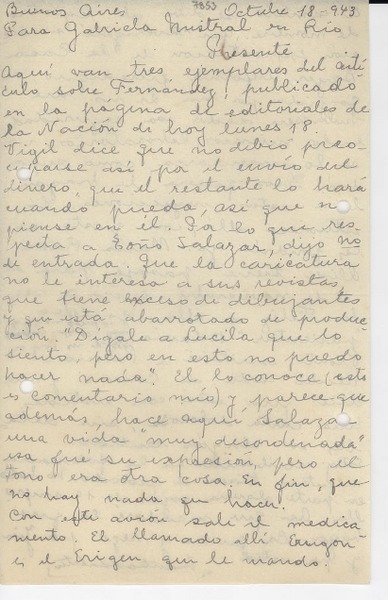 Buenos Aires, 7853 Octubre 18-943
Para Gabriela Mistral en Río
Presente
Aquí van tres ejemplares del artí
culo sobre Fernández, publicado
en la página de editoriales de
La Nación de hoy lunes 18.
Vigil dice que no debió preo-
cuparse así por el envío del
dinero, que el restante lo hará
cuando pueda, así que no
piense en él. Por lo que res-
pecta a Toño Salazar, dijo no
de entrada. Que la caricatura
no le interesa a sus revistas
que tiene exceso de dibujantes
y que está abarrotado de produc-
ción. "Dígale a Lucila que lo
siento, pero en esto no puedo
hacer nada". El lo conoce (este
es comentario mío) y parece que
además, hace aquí Salazar
una vida "muy desordenada"
esa fué su expresión, pero el
tono era otra cosa. En fin, que
no hay nada que hacer.
Con este avión sale el medica-
mento. El llamado allí
es el Erigen que le mando.